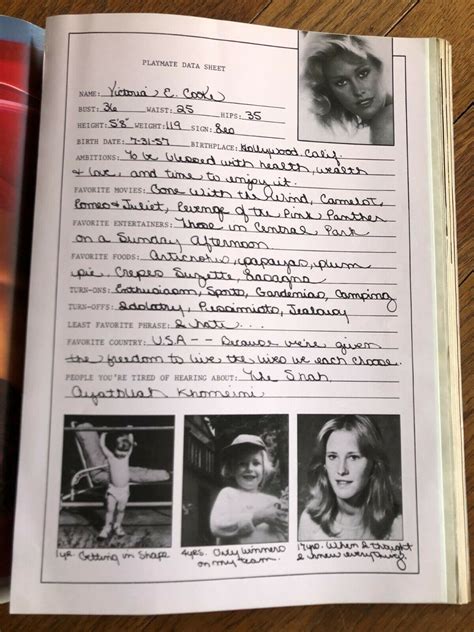 PLAYMATE DATA SHEET
NAME: Victoria E. Cooke
BUST: 36 WAIST: 25 HIPS: 35
HEIGHT: 5'8" WEIGHT: 119 SIGN: Leo
BIRTH DATE: 7-31-57 BIRTHPLACE: Hollywood, Calif.
AMBITIONS: To be blessed with health, wealth
& love, and time to enjoy it.
FAVORITE MOVIES: Gone With the Wind, Camelot,
Romeo & Juliet, Revenge of the Pink Panther
FAVORITE ENTERTAINERS: Those in Central Park
on a Sunday Afternoon
FAVORITE FOODS: Artichoke, papayas, plum
pie, Crepes Suzette, Lasagna
TURN-ONS: Enthusiasm, Sports, Gardenias, Camping
TURN-OFFS: Idolatry, Pessimists, Jealousy
LEAST FAVORITE PHRASE: I hate ...
FAVORITE COUNTRY: U.S.A -- Because we're given
the freedom to live the lives we each choose.
PEOPLE YOU'RE TIRED OF HEARING ABOUT: The Shah,
Ayatollah Khomeini
1yr Getting in Shape
4yrs. Only winners
on my team.
17yrs. When I thought
I knew everything.